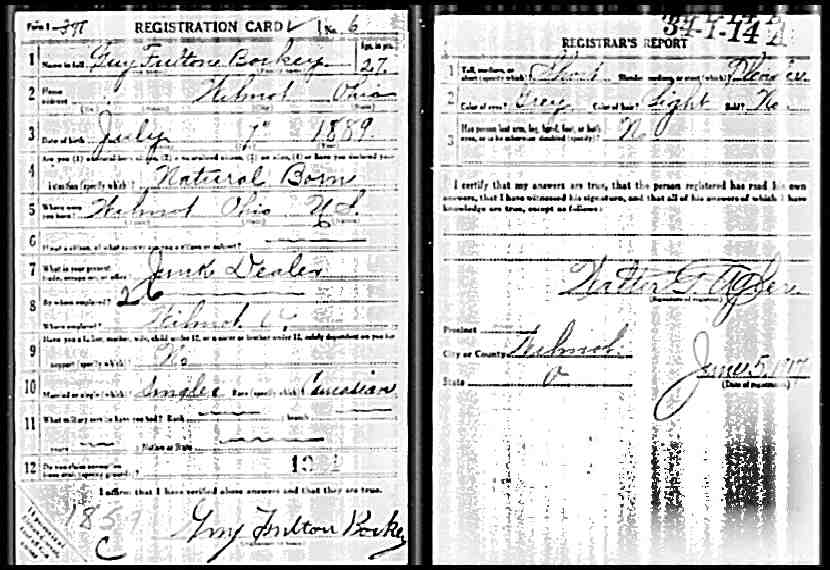 Form 1 REGISTRATION CARD No. 6
1 Name in full Guy Fultone Bockey Age, in yrs. 27
2 Home address Wilmot Ohio
3 Date of birth July 7" 1889
4 Are you (1) a natural born citizen, (2) a naturalized citizen, (3) an alien, (4) or have you declared your
intention (specify which)? Natural Born
5 Where were you born? Wilmot Ohio U.S.
6 If not a citizen, of what country are you a citizen or subject?
7 What is your present trade, occupation, or office? Junk Dealer
8 By whom employed?
Where employed? Wilmot O,
9 Have you a father, mother, wife, child under 12, or a sister or brother under 12, solely dependent on you for
support (specify which)? No
10 Married or single (which)? Single Race (specify which)? Caucasian
11 What military service have you had? Rank branch
years Nation or State
12 Do you claim exemption from draft (specify grounds)?
I affirm that I have verified above answers and that they are true.
Guy Fulton Bockey
C
34-1-14 A
REGISTRAR'S REPORT
1 Tall, medium, or short (specify which)? Short Slender, medium, or stout (which)?
2 Color of eyes? Grey Color of hair? Light Bald? No
3 Has person lost arm, leg, hand, foot, or both eyes, or is he otherwise disabled (specify)? N
I certify that my answers are true, that the person registered has read his own
answers, that I have witnessed his signature, and that all of his answers of which I have
knowledge are true, except as follows:
Walter G.
(Signature of registrar)
Precinct
City or County Wilmot
State O
June 5, 1917
(Date of registration)